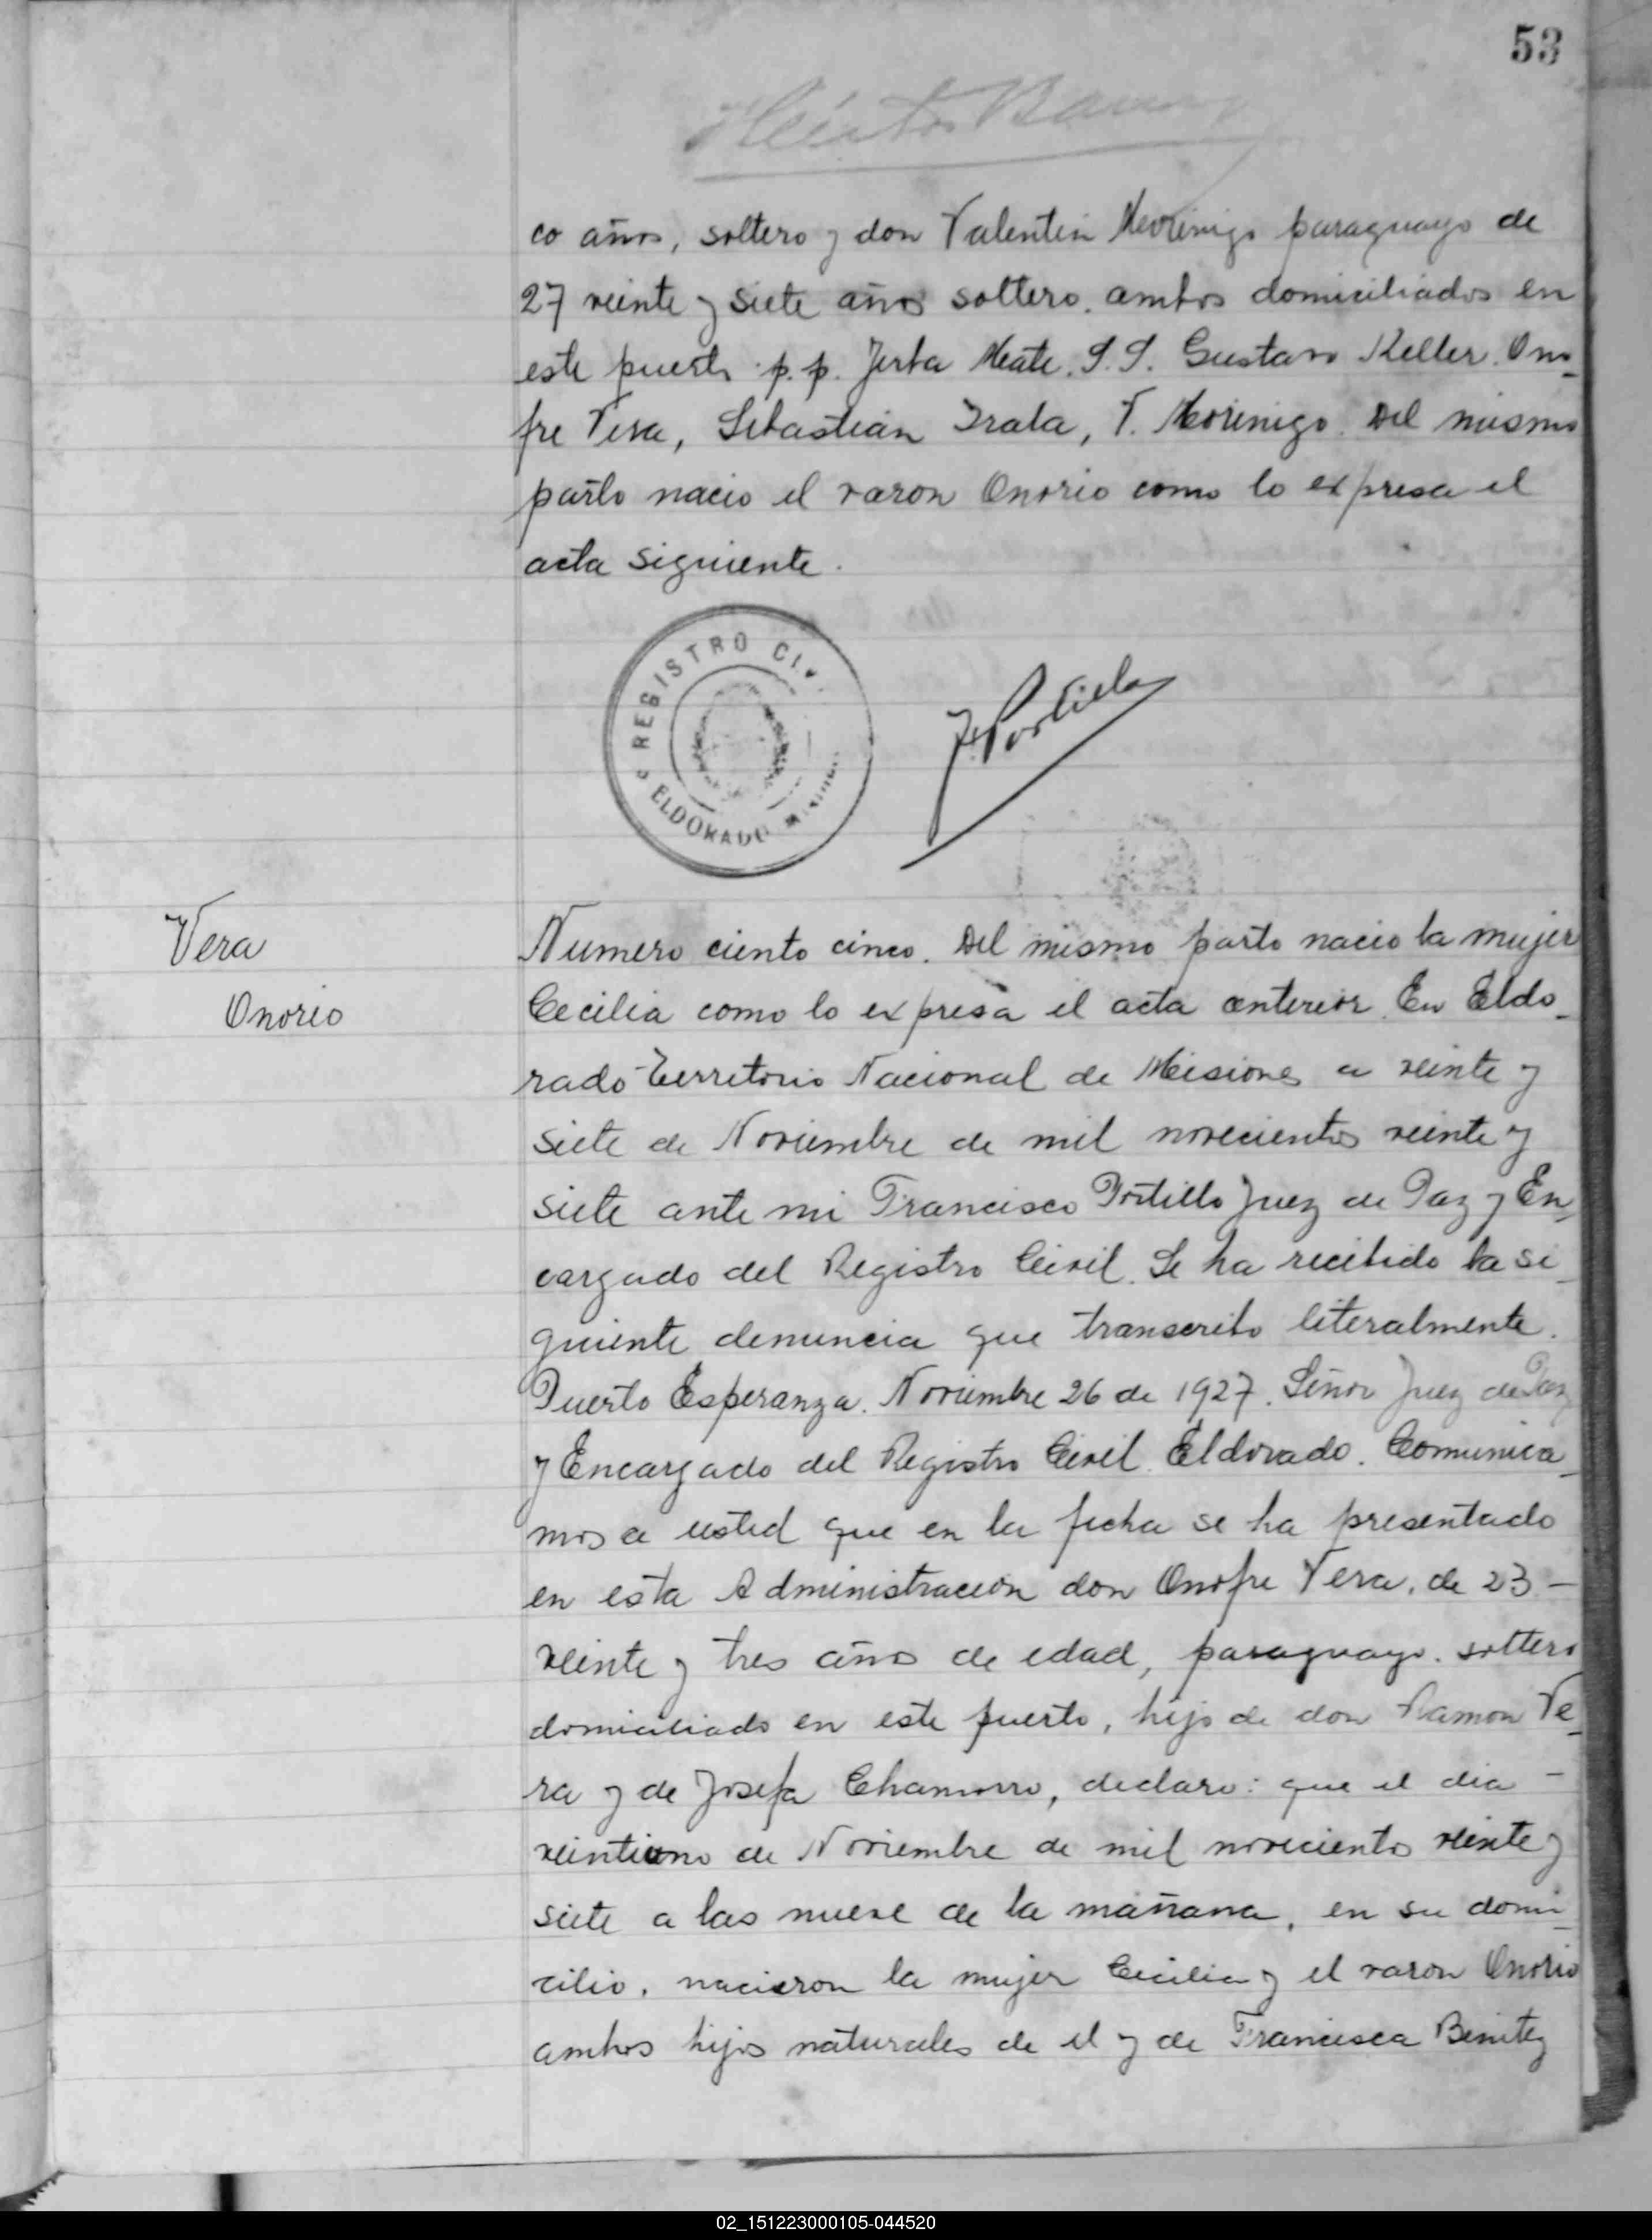 53
co años, soltero y don Valentin Morinigo paraguayo de
27 veinte y siete años soltero. ambos domiciliados en
este puerto p.p. Yerba Mate. S.S. Gustavo Keller. Ono-
fre Vera, Sebastián Irala, V. Morinigo. Del mismo
parto nacio el varon Onorio como lo expresa el
acta siguiente.
REGISTRO CIV
ELDORADO
F. Portillo
Vera
Onorio
Numero ciento cinco. Del mismo parto nacio la mujer
Cecilia como lo expresa el acta anterior. En Eldo-
rado Territorio Nacional de Misiones a veinte y
siete de Noviembre de mil novecientos veinte y
siete ante mi Francisco Portillo Juez de Paz y En-
cargado del Registro Civil. Se ha recibido la si-
guiente denuncia que transcribo literalmente.
Puerto Esperanza. Noviembre 26 de 1927. Señor Juez de Paz
y Encargado del Registro Civil. Eldorado. Comunica-
mos a usted que en la fecha se ha presentado
en esta Administracion don Onofre Vera, de 23 -
veinte y tres años de edad, paraguayo. soltero
domiciliado en este puerto, hijo de don Ramon Ve-
ra y de Josefa Chamorro, declaro: que el dia -
veintiuno de Noviembre de mil novecientos veinte y
siete a las nueve de la mañana, en su domi-
cilio, nacieron la mujer Cecilia y el varon Onorio
ambos hijos naturales de el y de Francisca Benitez
02_151223000105-044520